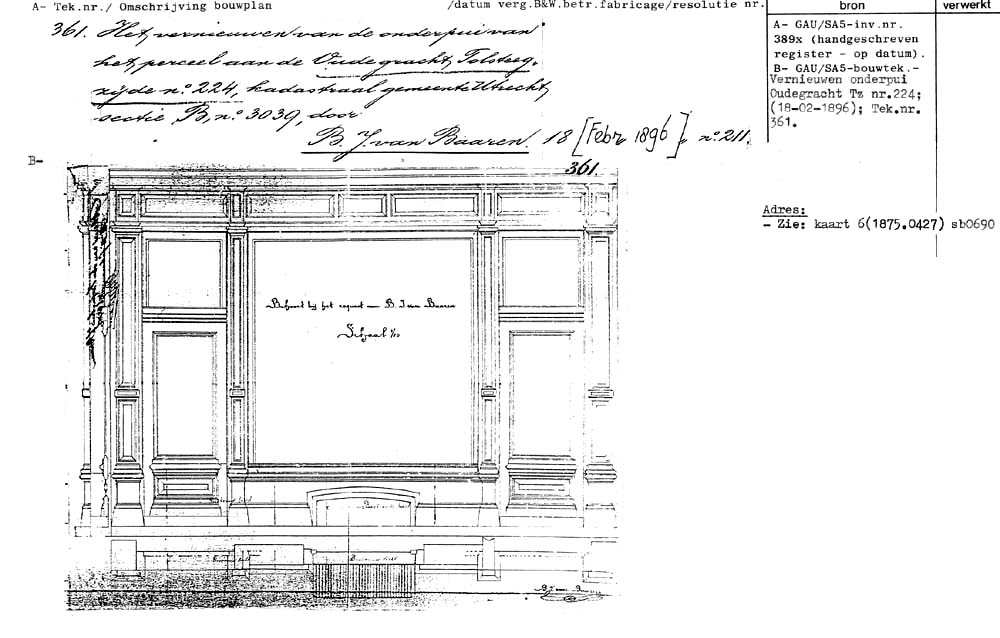 A- Tek.nr./ Omschrijving bouwplan /datum verg.B&W.betr.fabricage/resolutie nr.
bron
verwerkt
361. Het vernieuwen van de onderpui van
het perceel aan de Oude gracht, Tolsteeg-
zijde nº 224, kadastraal gemeente Utrecht,
sectie B, nº 3039, door
B. J. van Baaren. 18 [Febr. 1896], nº 211.
A- GAU/SA5-inv.nr.
389x (handgeschreven
register - op datum).
B- GAU/SA5-bouwtek.-
Vernieuwen onderpui
Oudegracht Tz nr.224;
(18-02-1896); Tek.nr.
361.
B-
361.
Adres:
- Zie: kaart 6(1875.0427) sb0690
Behoort bij het request van B. J van Baaren
Schaal 1/10
B J van Baaren